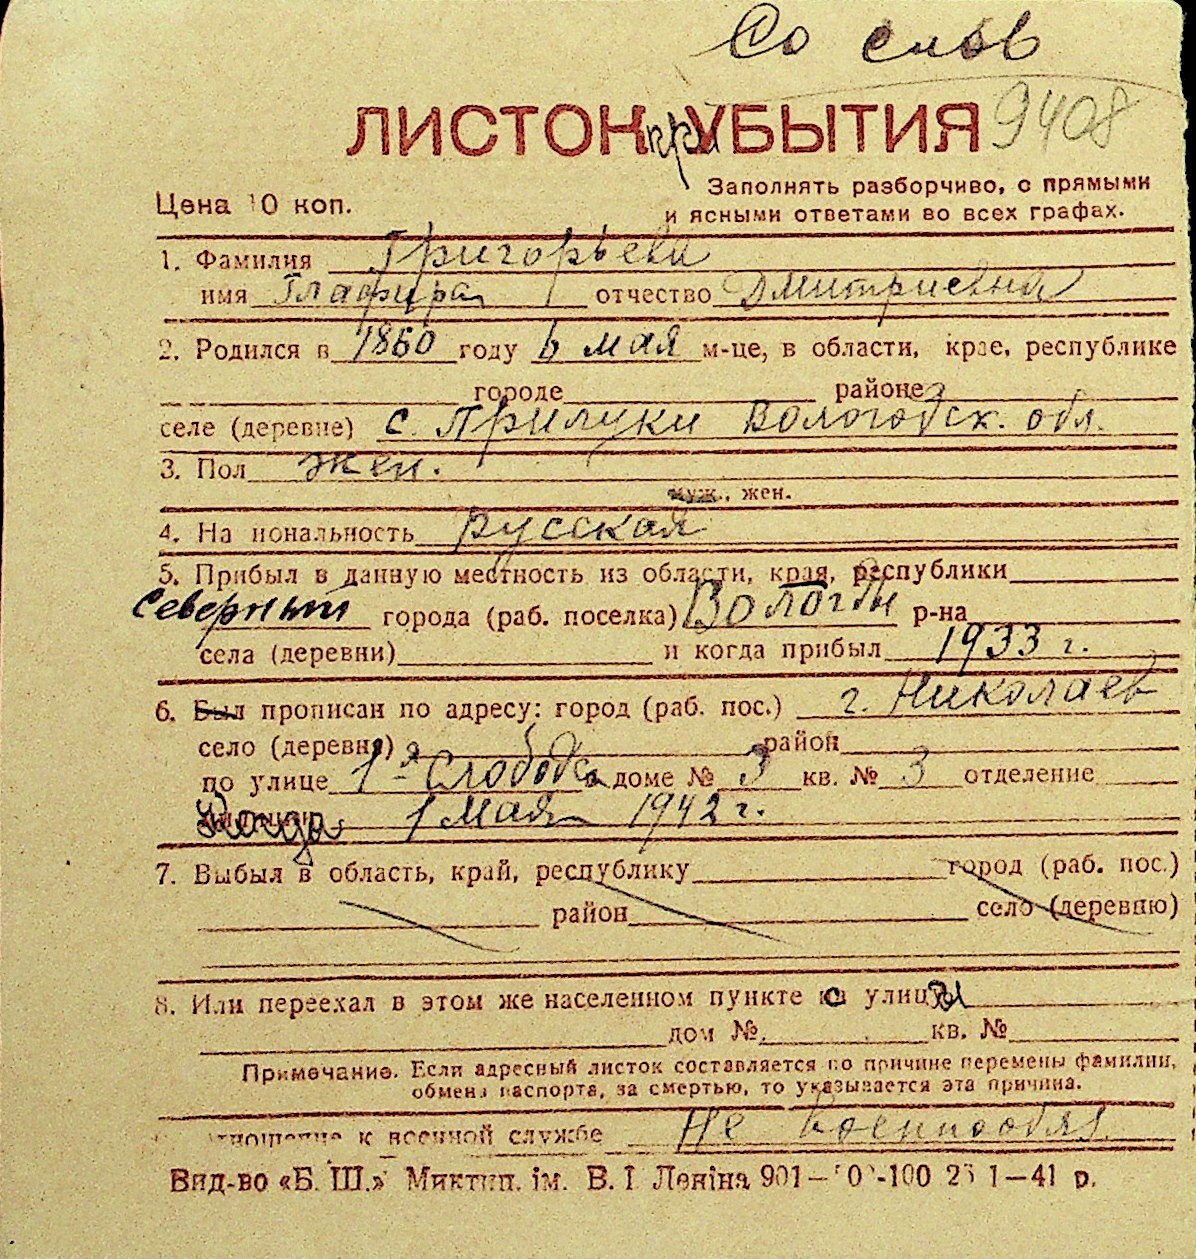 Со слов
ЛИСТОК приУБЫТИЯ 9408
Заполнять разборчиво, с прямыми
Цена 10 коп. и ясными ответами во всех графах.
1. Фамилия Григорьева
имя Глафира отчество Дмитриевна
2. Родился в 1860 году 6 мая м-це, в области, крае, республике
городе районе
селе (деревне) с. Прилуки Вологодск. обл.
3. Пол жен.
муж., жен.
4. На иональность русская
5. Прибыл в данную местность из области, края, республики
Северный города (раб. поселка) Вологды р-на
села (деревни) и когда прибыл 1933 г.
6. Был прописан по адресу: город (раб. пос.) г. Николаев
село (деревня) район
по улице 1-я Слободска доме № 3 кв. № 3 отделение
Когда 1 Мая 1942 г.
7. Выбыл в область, край, республику город (раб. пос.)
район село (деревню)
8. Или переехал в этом же населенном пункте с улицы
дом № кв. №
Примечание. Если адресный листок составляется по причине перемены фамилии,
обмена паспорта, за смертью, то указывается эта причина.
тношение к военной службе Не военнообяз.
Вид-во «Б. Ш.» Миктип. ім. В. І Леніна 901— -100 1—41 р.